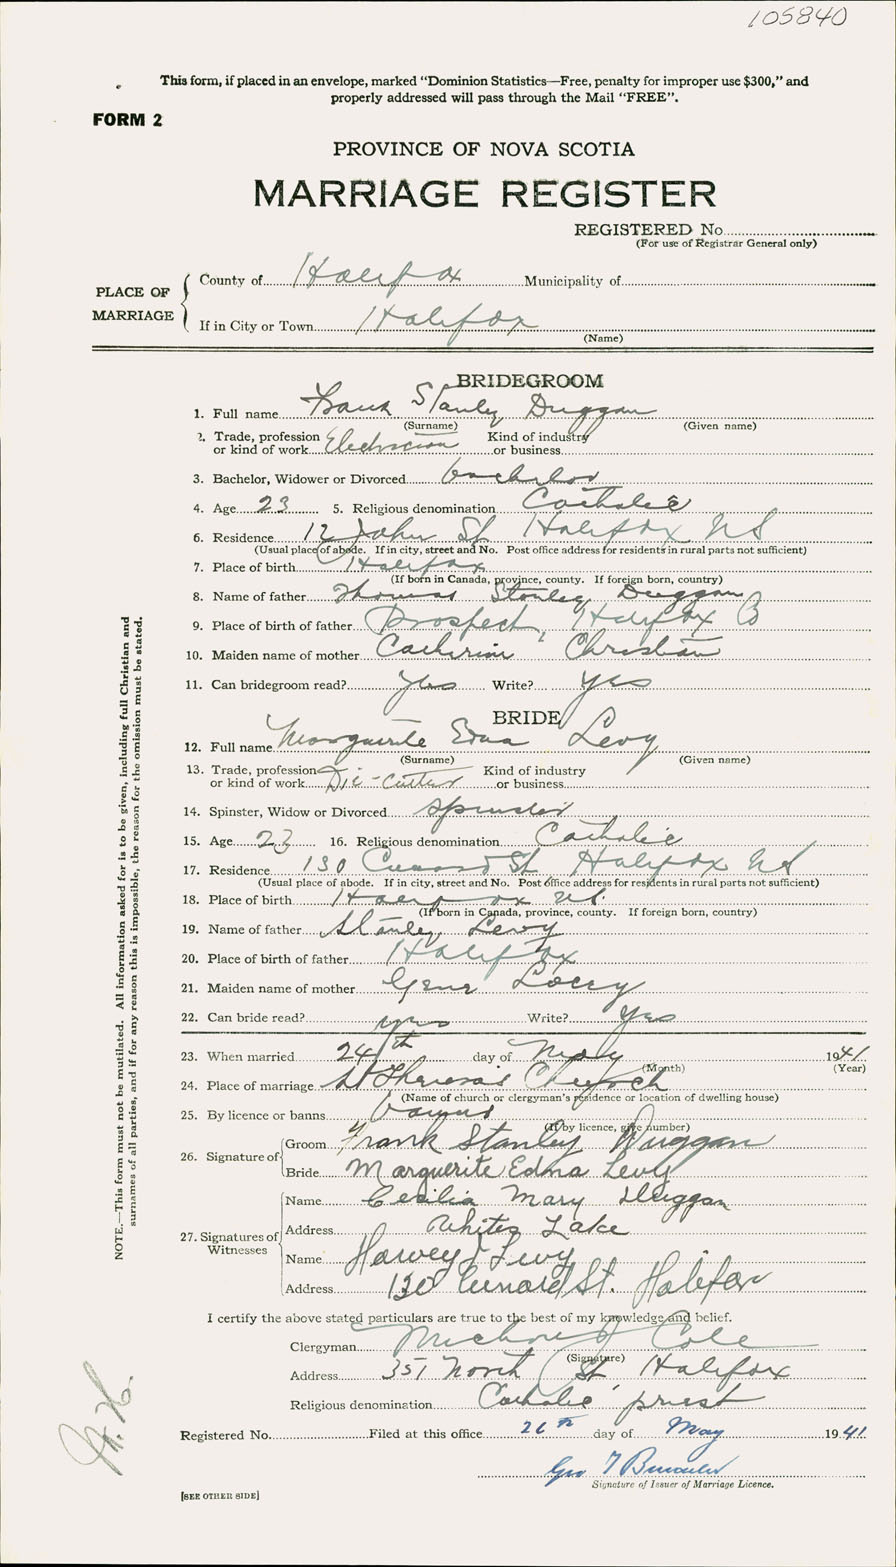 105840
This form, if placed in an envelope, marked "Dominion Statistics—Free, penalty for improper use $300," and
properly addressed will pass through the Mail "FREE".
FORM 2
PROVINCE OF NOVA SCOTIA
MARRIAGE REGISTER
REGISTERED No.
(For use of Registrar General only)
PLACE OF MARRIAGE
County of Halifax Municipality of
If in City or Town Halifax
(Name)
BRIDEGROOM
1. Full name Frank Stanley Duggan
(Surname) (Given name)
2. Trade, profession or kind of work Electrician Kind of industry or business
3. Bachelor, Widower or Divorced bachelor
4. Age 23 5. Religious denomination Catholic
6. Residence 12 John St Halifax NS
(Usual place of abode. If in city, street and No. Post office address for residents in rural parts not sufficient)
7. Place of birth Halifax
(If born in Canada, province, county. If foreign born, country)
8. Name of father Thomas Stanley Duggan
9. Place of birth of father Prospect, Halifax
10. Maiden name of mother Catherine Christian
11. Can bridegroom read? Yes Write? Yes
BRIDE
12. Full name Marguerite Edna Levy
(Surname) (Given name)
13. Trade, profession or kind of work Die-Cutter Kind of industry or business
14. Spinster, Widow or Divorced Spinster
15. Age 23 16. Religious denomination Catholic
17. Residence 130 Cunard St Halifax NS
(Usual place of abode. If in city, street and No. Post office address for residents in rural parts not sufficient)
18. Place of birth Halifax NS.
(If born in Canada, province, county. If foreign born, country)
19. Name of father Stanley Levy
20. Place of birth of father Halifax
21. Maiden name of mother
22. Can bride read? yes Write? Yes
23. When married 24th day of May 1941
(Month) (Year)
24. Place of marriage St Theresa's Church
(Name of church or clergyman's residence or location of dwelling house)
25. By licence or banns banns
(If by licence, give number)
26. Signature of Groom Frank Stanley Duggan
Bride Marguerite Edna Levy
27. Signatures of Witnesses
Name Cecilia Mary Duggan
Address Whites Lake
Name Harvey J Levy
Address 130 Cunard St. Halifax
I certify the above stated particulars are true to the best of my knowledge and belief.
Clergyman Michael J Cole
(Signature)
Address 351 North St Halifax
Religious denomination Catholic priest
Registered No. Filed at this office 26th day of May 1941
Geo
Signature of Issuer of Marriage Licence.
[SEE OTHER SIDE]
NOTE.—This form must not be mutilated. All information asked for is to be given, including full Christian and
surnames of all parties, and if for any reason this is impossible, the reason for the omission must be stated.